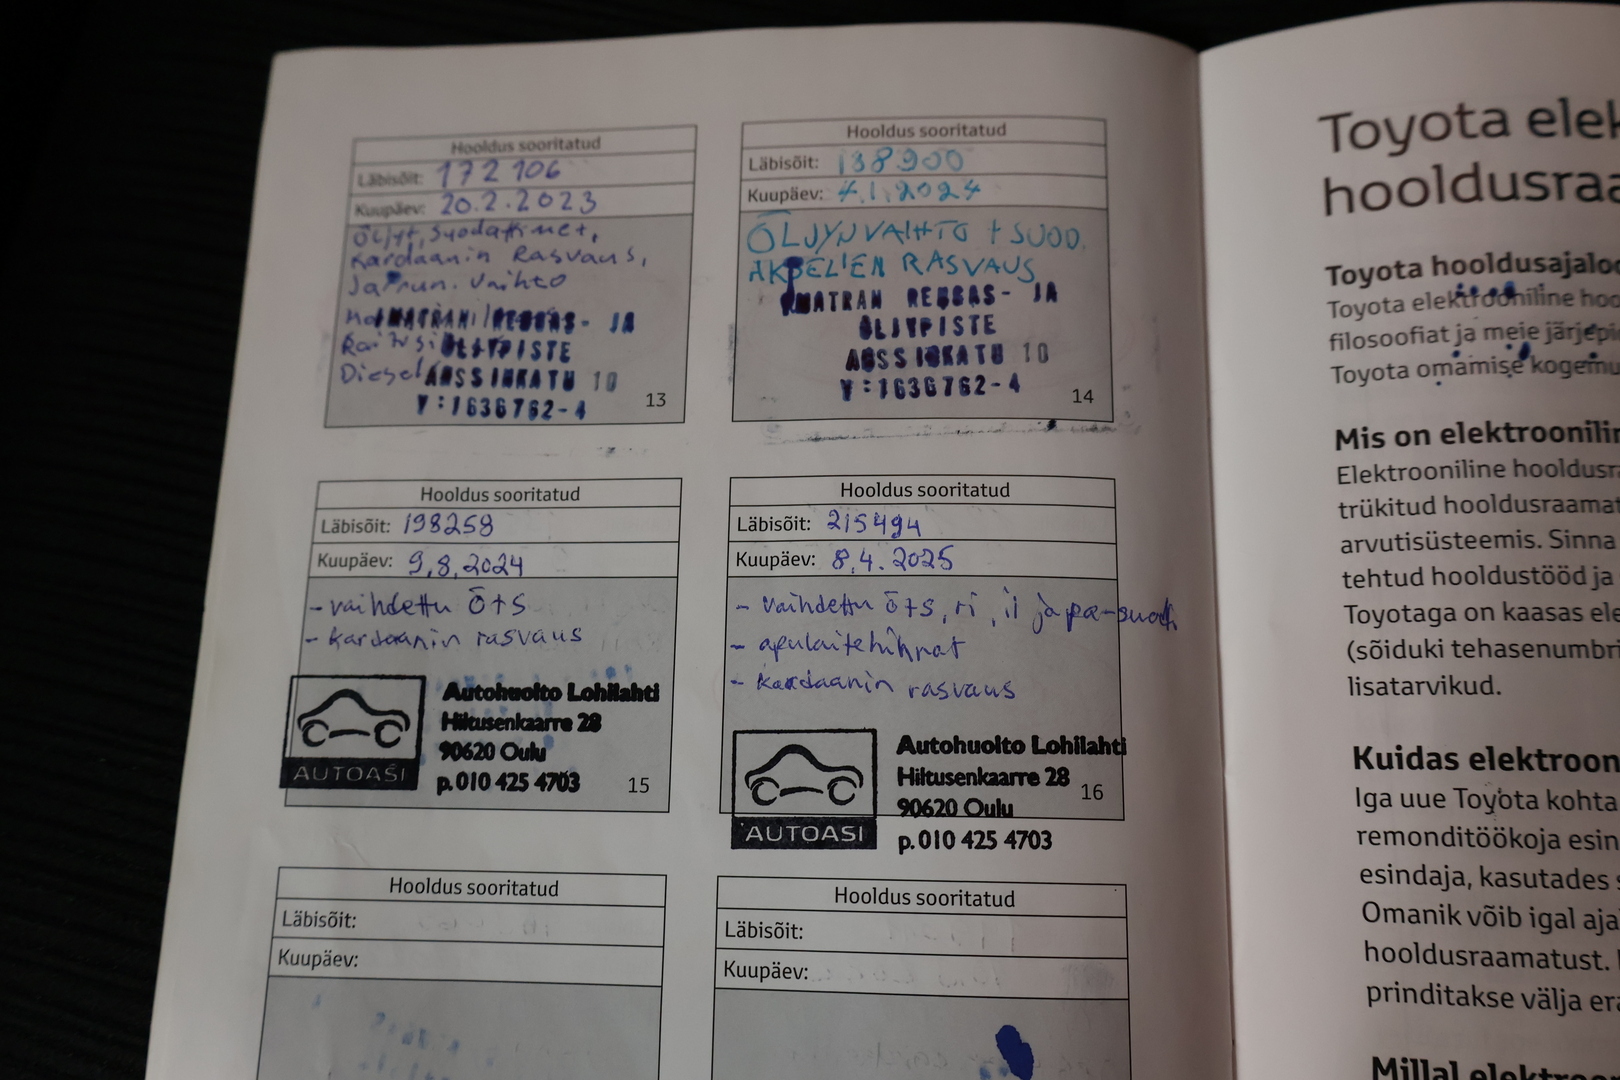 Hooldus sooritatud
Läbisõit: 172106
Kuupäev: 20.2.2023
Öljyt, suodattimet,
Kardaanin Rasvaus,
Jarrun. Vaihto
IMATRAN RENGAS- JA
ÖLJYPISTE
Diesel ANSSINKATU 10
Y:1636762-4
13
Hooldus sooritatud
Läbisõit: 138900
Kuupäev: 4.1.2024
ÖLJYNVAIHTO + SUOD.
AKSELIEN RASVAUS
IMATRAN RENGAS- JA
ÖLJYPISTE
ANSSINKATU 10
Y:1636762-4
14
Hooldus sooritatud
Läbisõit: 198258
Kuupäev: 9.8.2024
- vaihdettu ö+s
- kardaanin rasvaus
AUTOASI
Autohuolto Lohilahti
Hiltusenkaarre 28
90620 Oulu
p. 010 425 4703
15
Hooldus sooritatud
Läbisõit: 215494
Kuupäev: 8.4.2025
- vaihdettu ö+s, ri, il ja pa-suod.
- apulaitehihnat
- kardaanin rasvaus
AUTOASI
Autohuolto Lohilahti
Hiltusenkaarre 28
90620 Oulu
p. 010 425 4703
16
Hooldus sooritatud
Läbisõit:
Kuupäev:
Hooldus sooritatud
Läbisõit:
Kuupäev:
Toyota elek
hooldusraa
Toyota hooldusajaloo
Toyota elektrooniline hoo
filosoofiat ja meie järjepi
Toyota omamise kogemu
Mis on elektroonilin
Elektrooniline hooldusra
trükitud hooldusraamat
arvutisüsteemis. Sinna
tehtud hooldustööd ja
Toyotaga on kaasas ele
(sõiduki tehasenumbri
lisatarvikud.
Kuidas elektroon
Iga uue Toyota kohta
remonditöökoja esin
esindaja, kasutades s
Omanik võib igal aja
hooldusraamatust.
prinditakse välja era
Millal elektroo